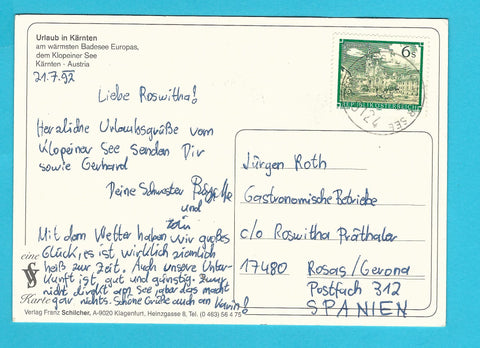 Urlaub in Kärnten
am wärmsten Badesee Europas,
dem Klopeiner See
Kärnten - Austria
21.7.92
Liebe Roswitha!
Herzliche Urlaubsgrüße vom
Klopeiner See senden Dir
sowie Gerhard
Deine Schwester
und
Mit dem Wetter haben wir großes
Glück, es ist wirklich ziemlich
heiß zur Zeit. Auch unsere Unter-
kunft ist gut und günstig. Zwar
nicht direkt am See, aber das macht
gar nichts. Schöne Grüße auch an Karin!
eine
Karte
Verlag Franz Schilcher, A-9020 Klagenfurt, Heinzgasse 8, Tel. (0 463) 56 4 75
6 S
REPUBLIK ÖSTERREICH
9122
SEE
Jürgen Roth
Gastronomische Betriebe
c/o Roswitha Präthaler
17480 Rosas/Gerona
Postfach 312
SPANIEN